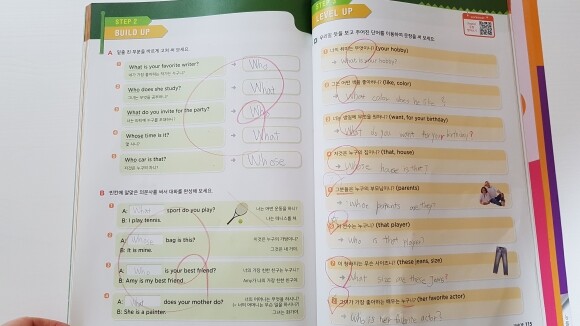 STEP 2
BUILD UP
A 밑줄 친 부분을 바르게 고쳐 써 보세요.
What is your favorite writer?
→ Who
네가 가장 좋아하는 작가는 누구니?
Who does she study?
→ What
그녀는 무엇을 공부하니?
What do you invite for the party?
→ Who
너는 파티에 누구를 초대하니?
Whose time is it?
→ What
몇 시니?
Who car is that?
→ Whose
저것은 누구의 차니?
B 빈칸에 알맞은 의문사를 써서 대화를 완성해 보세요.
A: What sport do you play?
너는 어떤 운동을 하니?
B: I play tennis.
나는 테니스를 쳐.
A: Whose bag is this?
이것은 누구의 가방이니?
B: It is mine.
그것은 내 거야.
A: Who is your best friend?
너의 가장 친한 친구는 누구니?
B: Amy is my best friend.
Amy가 나의 가장 친한 친구야.
A: What does your mother do?
너의 어머니는 무엇을 하시니?
B: She is a painter.
그녀는 화가야.
LEVEL UP
우리말 뜻을 보고 주어진 단어를 이용하여 문장을 써 보세요.
너의 취미는 무엇이니? (your hobby)
→ What is your hobby?
그는 어떤 색을 좋아하니? (like, color)
→ What color does he like?
(want, for your birthday)
→ What do you want for your birthday?
저것은 누구의 집이니? (that, house)
→ Whose house is that?
그분들은 누구의 부모님이니? (parents)
→ Whose parents are they?
저 선수는 누구니? (that player)
→ Who is that player?
이 청바지는 무슨 사이즈니? (these jeans, size)
→ What size are these jeans?
그녀가 가장 좋아하는 배우는 누구니? (her favorite actor)
→ Who is her favorite actor?
115